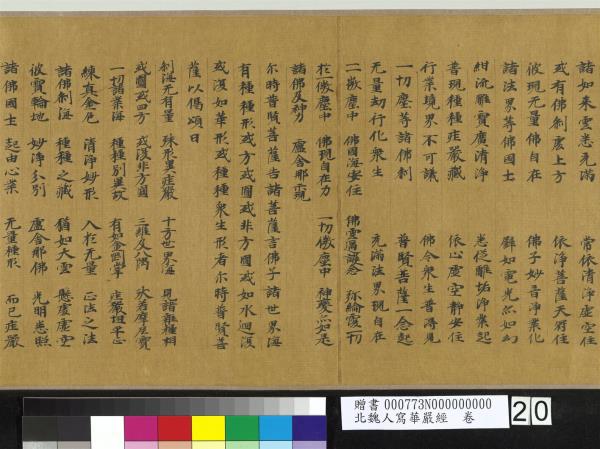 諸如来雲悉充滿 當依清淨虛空住
或有佛剎虛上方 依淨菩薩天冠住
彼現无量佛自在 佛子妙音淨業化
諸法界等佛國土 群如電光然如幻
紺流離寶廣清淨 悉從離垢淨業起
普現種種莊嚴藏 依止虛空靜安住
行業境界不可議 佛令衆生普得見
一切塵等諸佛剎 普賢菩薩一念起
无量劫行化衆生 充滿法界現自在
一一微塵中 佛國海安住 佛雲遍護念 弥綸覆一切
於一微塵中 佛現自在力 一切微塵中 神變亦如是
諸佛及神力 盧舍那示現
尒時普賢菩薩告諸菩薩言佛子諸世界海
有種種形或方或圓或非方圓或如水洄澓
或復如華形或種種衆生形者尒時普賢菩
薩以偈頌曰
剎海无有量 殊形異莊嚴 十方世界海 見諸種種相
或圓或四方 或復非方圓 三維及八隅 狀若摩尼寶
一切諸業海 種種別異故 有如金剛掌 莊嚴坦平正
練真金色 清淨妙形 入於无量 正法之法
諸佛剎海 種種之藏 猶如大雲 懸處虛空
彼寶輪地 妙淨分別 盧舍那佛 光明悉照
諸佛國土 起由心業 无量種形 而已莊嚴
贈書 000773N000000000
北魏人寫華嚴經 卷
20